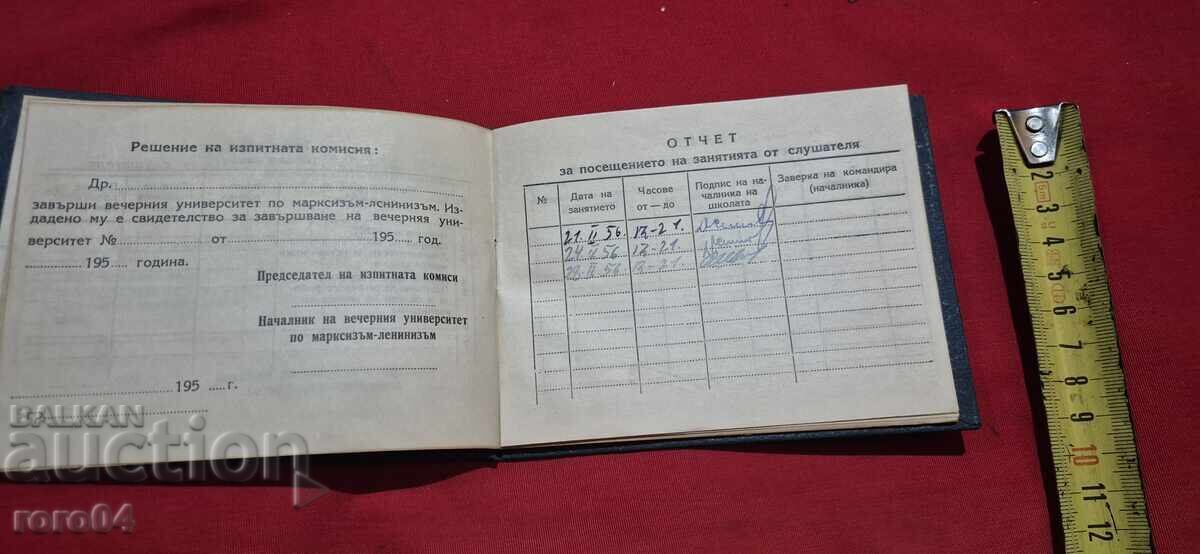 Решение на изпитната комисия:
Др.
завърши вечерния университет по марксизъм-лснинизъм. Из-
дадено му е свидетелство за завършване на вечерния уни-
верситет № от 195 год.
195 година.
Председател на изпитната комиси
Началник на вечерния университет
по марксизъм-ленинизъм
195 г.
гр.
ОТЧЕТ
за посещението на занятията от слушателя
№ Дата на занятието Часове от — до Подпис на на-чалника на школата Заверка на командира (началника)
21. II 56. 17-21.
24 II 56 17-21.
28 II 56 17-21.
2
3
4
5
6
7
8
9
10
11
12
BALKAN
auction
roro04